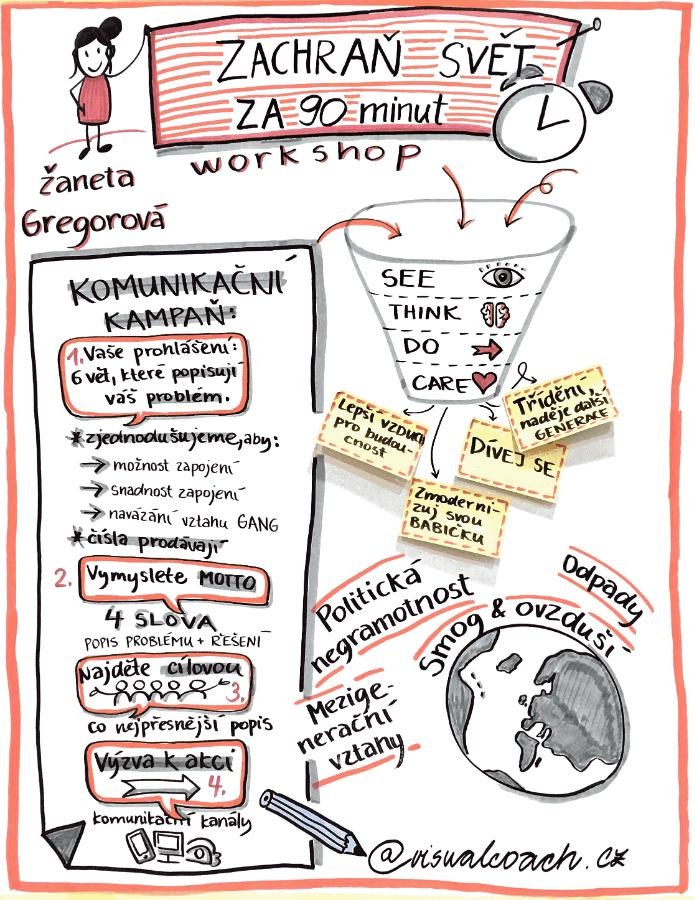 ZACHRAŇ SVĚT
ZA 90 minut
workshop
Žaneta
Gregorová
KOMUNIKAČNÍ
KAMPAŇ:
1. Vaše prohlášení:
6 vět, které popisují
váš problém.
* zjednodušujeme, aby:
→ možnost zapojení
→ snadnost zapojení
→ navázání vztahu GANG
* čísla prodávají
2. Vymyslete MOTTO
4 SLOVA
POPIS PROBLÉMU + ŘEŠENÍ
Najděte cílovou
3.
co nejpřesnější popis
Výzva k akci
4.
komunikační kanály
SEE
THINK
DO
CARE
Lepší vzduch
pro budou-
cnost
DÍVEJ SE
Třídění,
naděje další
GENERACE
Zmoderni-
zuj svou
BABIČKU
Politická
negramotnost
Smog & ovzduší
Odpady
Mezige-
nerační
vztahy
@visualcoach.cz